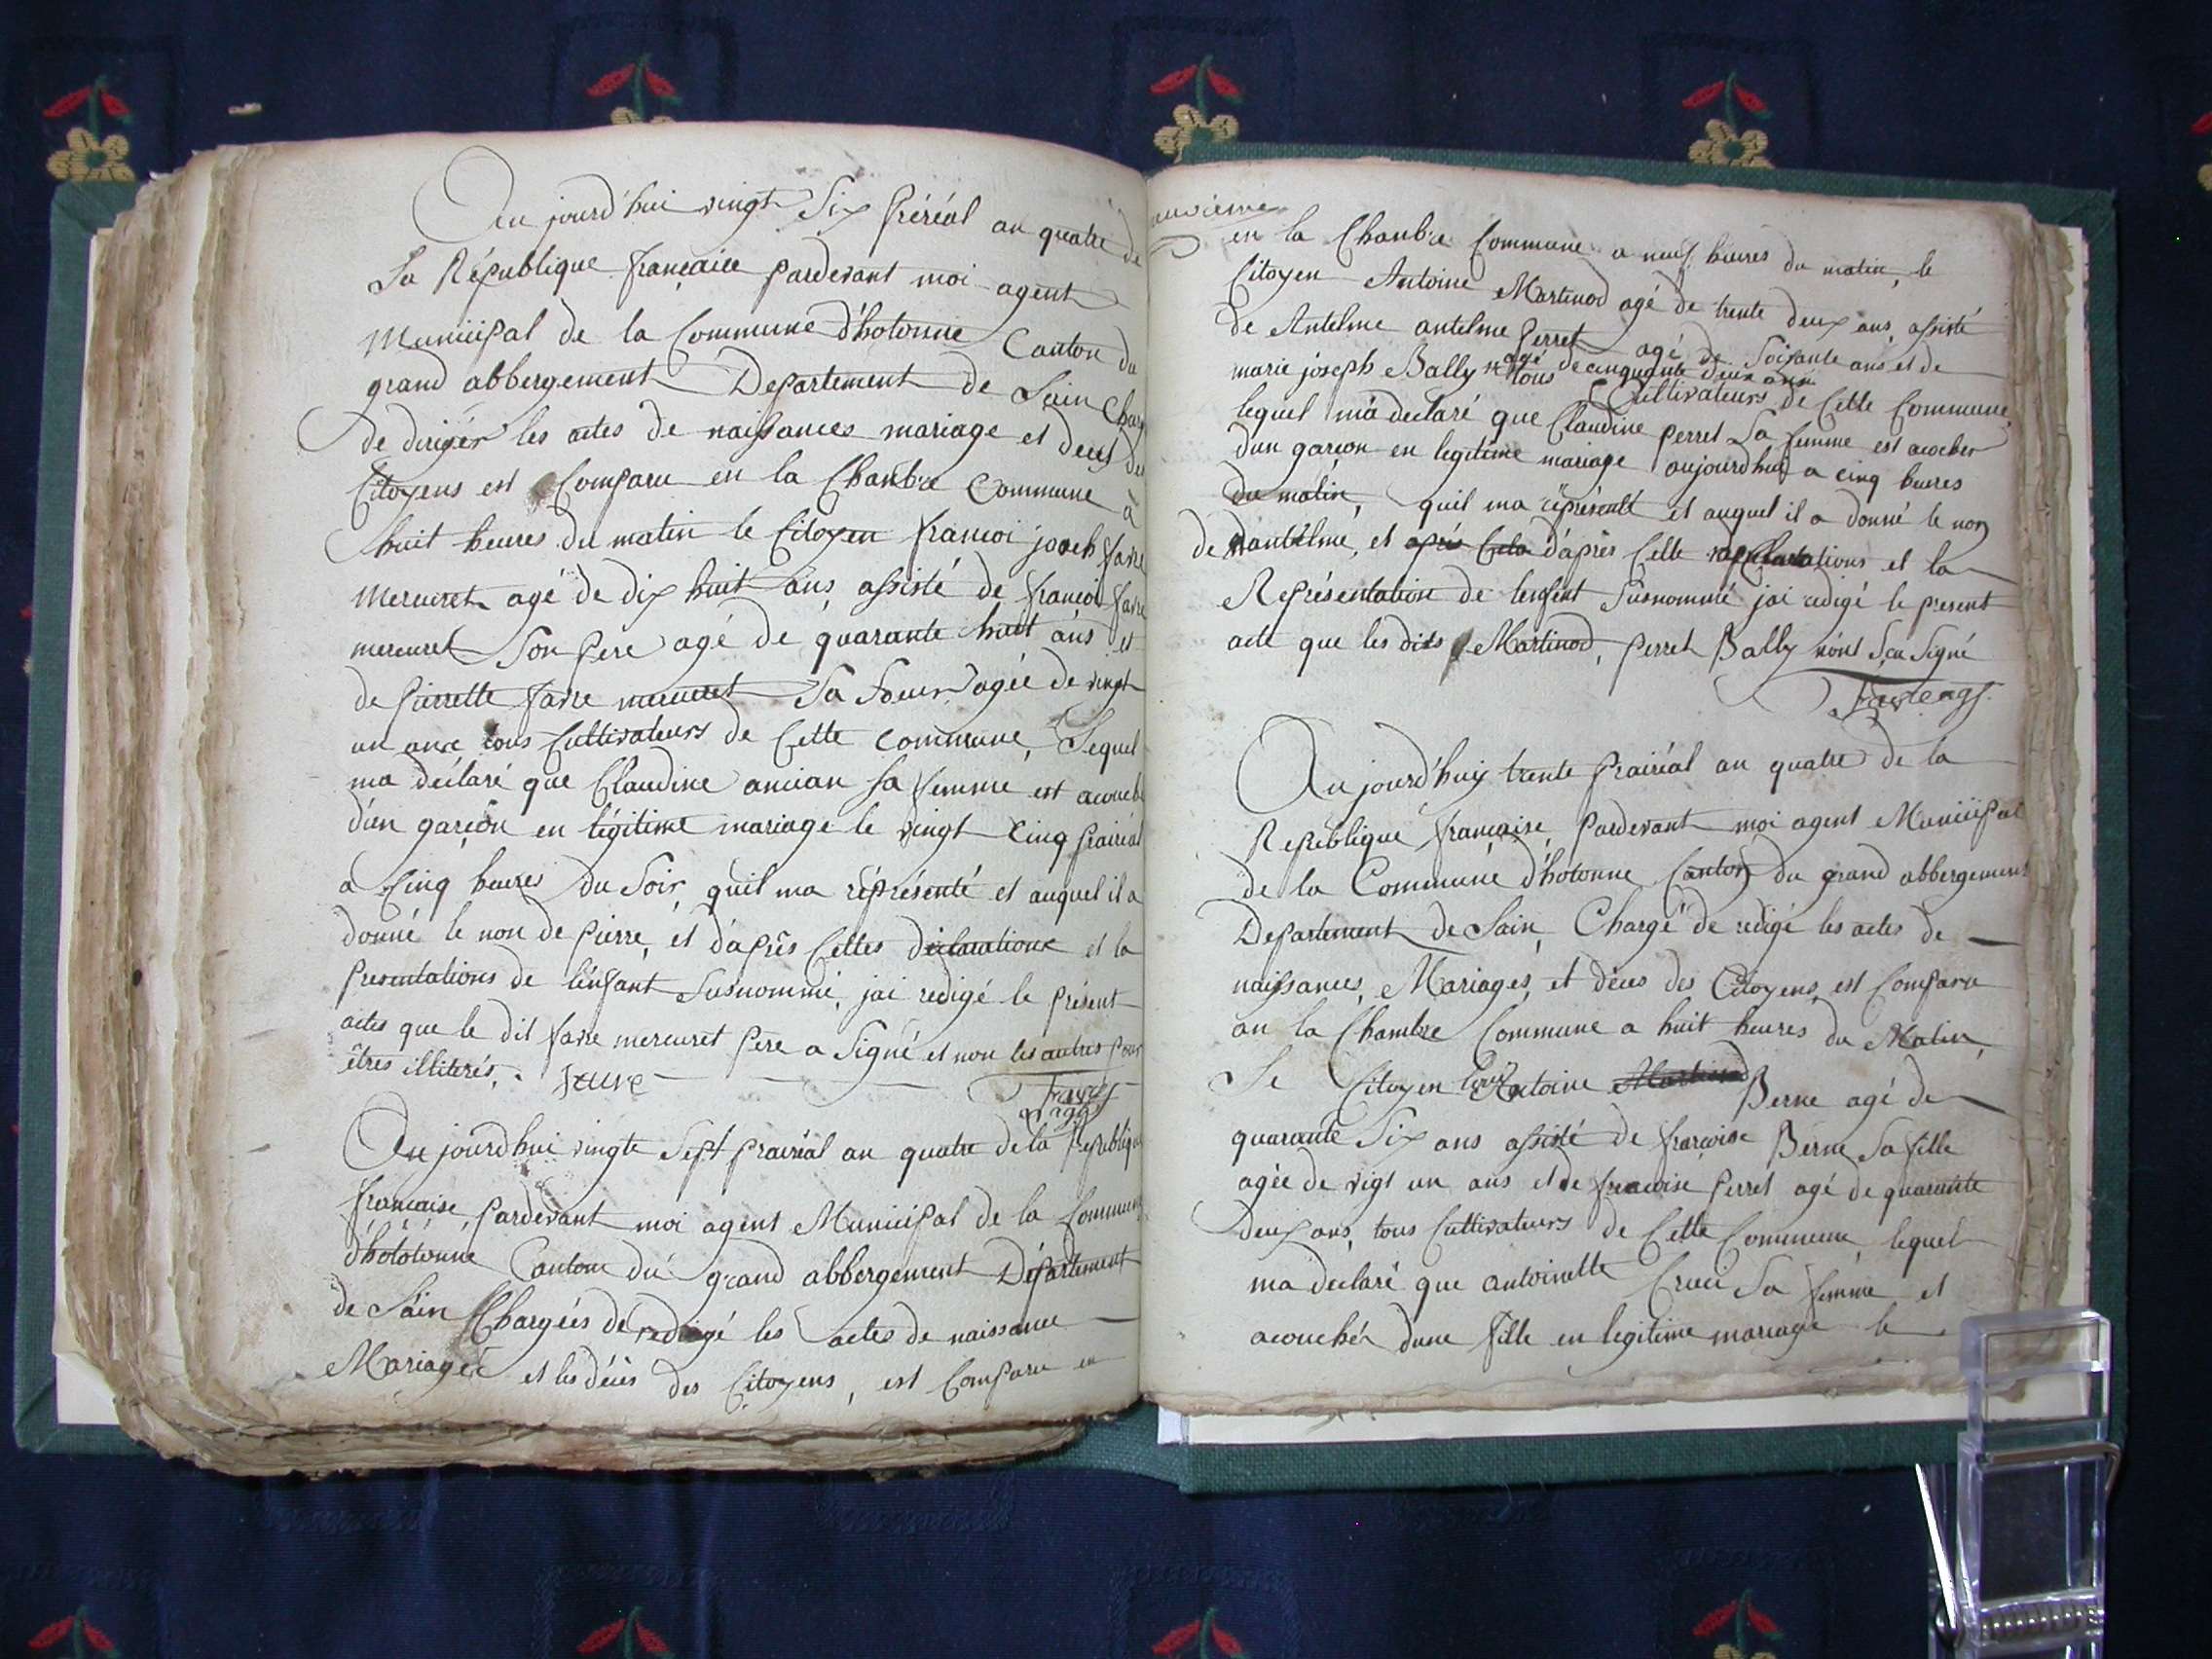 Au jourd'hui vingt Six Préréal an quatre de
La République française pardevant moi agent
Municipal de la Commune d'hotonne Canton du
grand abbergement Departement de Lain Char
de diriger les actes de naissances mariage et deces des
Citoyens est Comparu en la Chanbre Commune à
huit heures du matin le Citoyen francoi joseh favre
mercuret agé de dix huit ans, assisté de françoi favre
mercuret Son pere agé de quarante huit ans et
de pierrette favre mercuret Sa Soeur agée de vingt
un ans tous Cultivateurs de Cette Commune, Lequel
ma déclaré que Claudine ancian sa femme est acouché
d'un garçon en légitime mariage le vingt Cinq prairéal
a Cinq heures du Soir, qu'il ma réprésenté et auquel il a
donné le non de pierre, et d'après Celles déclarations et la
presentations de l'enfant Susnommé, jai redigé le présent
actes que le dit favre mercuret pere a Signé et non les autres pour
êtres illiterés,. favre
Au jourdhui vingte Sept prairéal an quatre de la République
française, pardevant moi agent Municipal de la Commune
d'hototonne Canton du grand abbergement Département
de Lain Chargées de redigé les actes de naissance
Mariagée et les décès des Citoyens, est Comparu en
en la Chanbre Commune a neuf heures du matin, le
Citoyen Antoine Martinod agé de trente deux ans, assisté
de Antelme antelme Perret agé de Soixante ans et de
marie joseph Bally agé de cinquante deux ans
tous Cultivateurs de Cette Commune,
lequel m'a declaré que Claudine perret Sa femme est acocher
d'un garçon en legitime mariage aujourdhuy a cinq heures
du matin, quil ma représenté et auquel il a donné le non
de dantelme, et après Cela d'après Celle declarations et la
Représentation de lenfent Susnommé jai redigé le present
acte que les dits Martinod, perret Bally nont Sçu Signé
Au jourd'huy trente prairéal an quatre de la
République française, pardevant moi agent Municipal
de la Commune d'hotonne Canton du grand abbergement
Departement de Lain, Chargé de redigé les actes de
naissances, Mariages, et déces des Citoyens, est Comparu
an la Chambre Commune a huit heures du Matin,
Le Citoyen Antoine Martinod Berne agé de
quarante Six ans assisté de françoise Berne Sa fille
agée de vigt un ans et de francoise perret agé de quarante
deux ans, tous Cultivateurs de Cette Commune, lequel
ma declaré que antoinette Sa femme et
acouchér dune fille en legitime mariage le